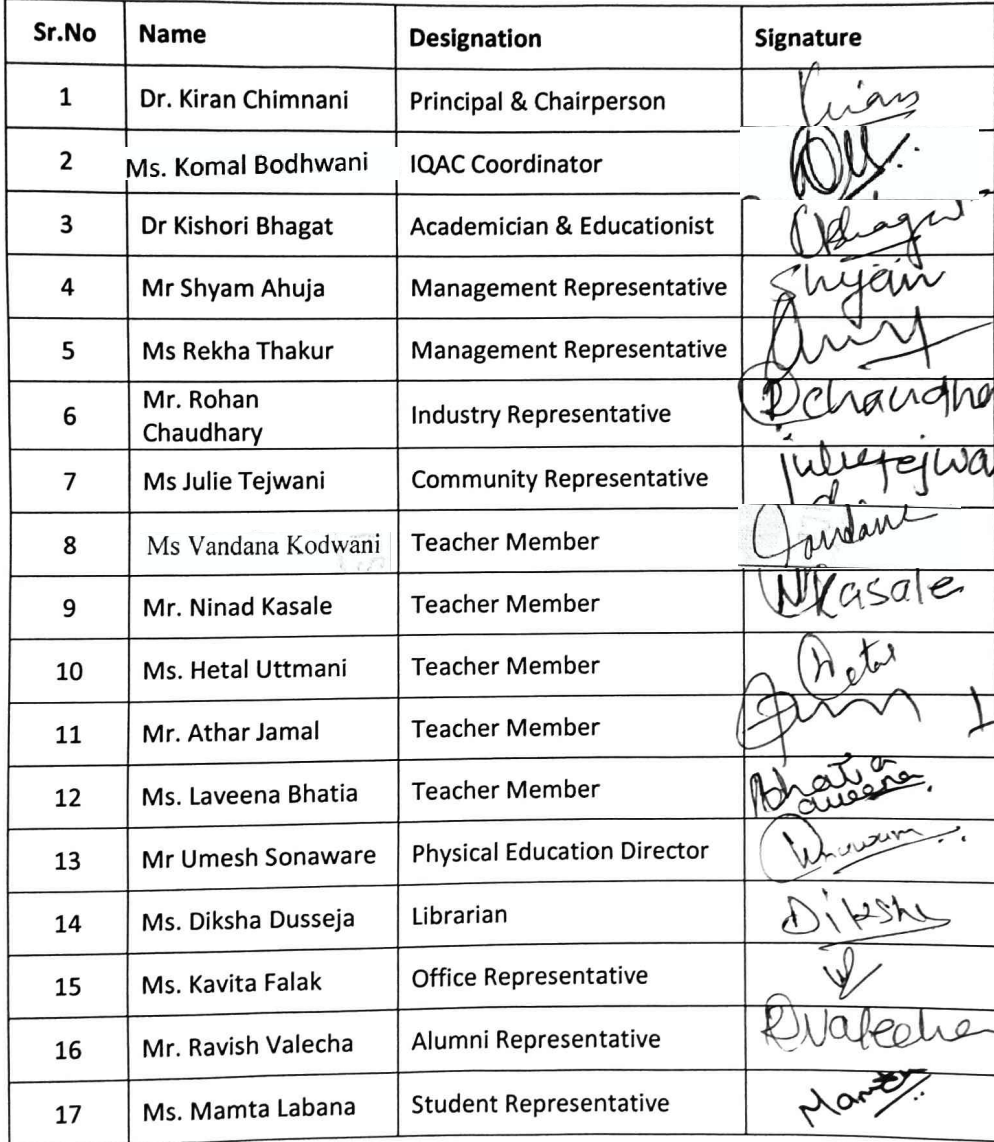 Sr.No Name Designation Signature
1 Dr. Kiran Chimnani Principal & Chairperson Kiran
2 Ms. Komal Bodhwani IQAC Coordinator
3 Dr Kishori Bhagat Academician & Educationist Bhagat
4 Mr Shyam Ahuja Management Representative Shyam
5 Ms Rekha Thakur Management Representative
6 Mr. Rohan
Chaudhary Industry Representative Rchaudha
7 Ms Julie Tejwani Community Representative julietejwa
8 Ms Vandana Kodwani Teacher Member Vandana
9 Mr. Ninad Kasale Teacher Member NKasale
10 Ms. Hetal Uttmani Teacher Member Hetal
11 Mr. Athar Jamal Teacher Member
12 Ms. Laveena Bhatia Teacher Member Bhatia
Laveena
13 Mr Umesh Sonaware Physical Education Director
14 Ms. Diksha Dusseja Librarian Diksha
15 Ms. Kavita Falak Office Representative
16 Mr. Ravish Valecha Alumni Representative RValecha
17 Ms. Mamta Labana Student Representative Mamta